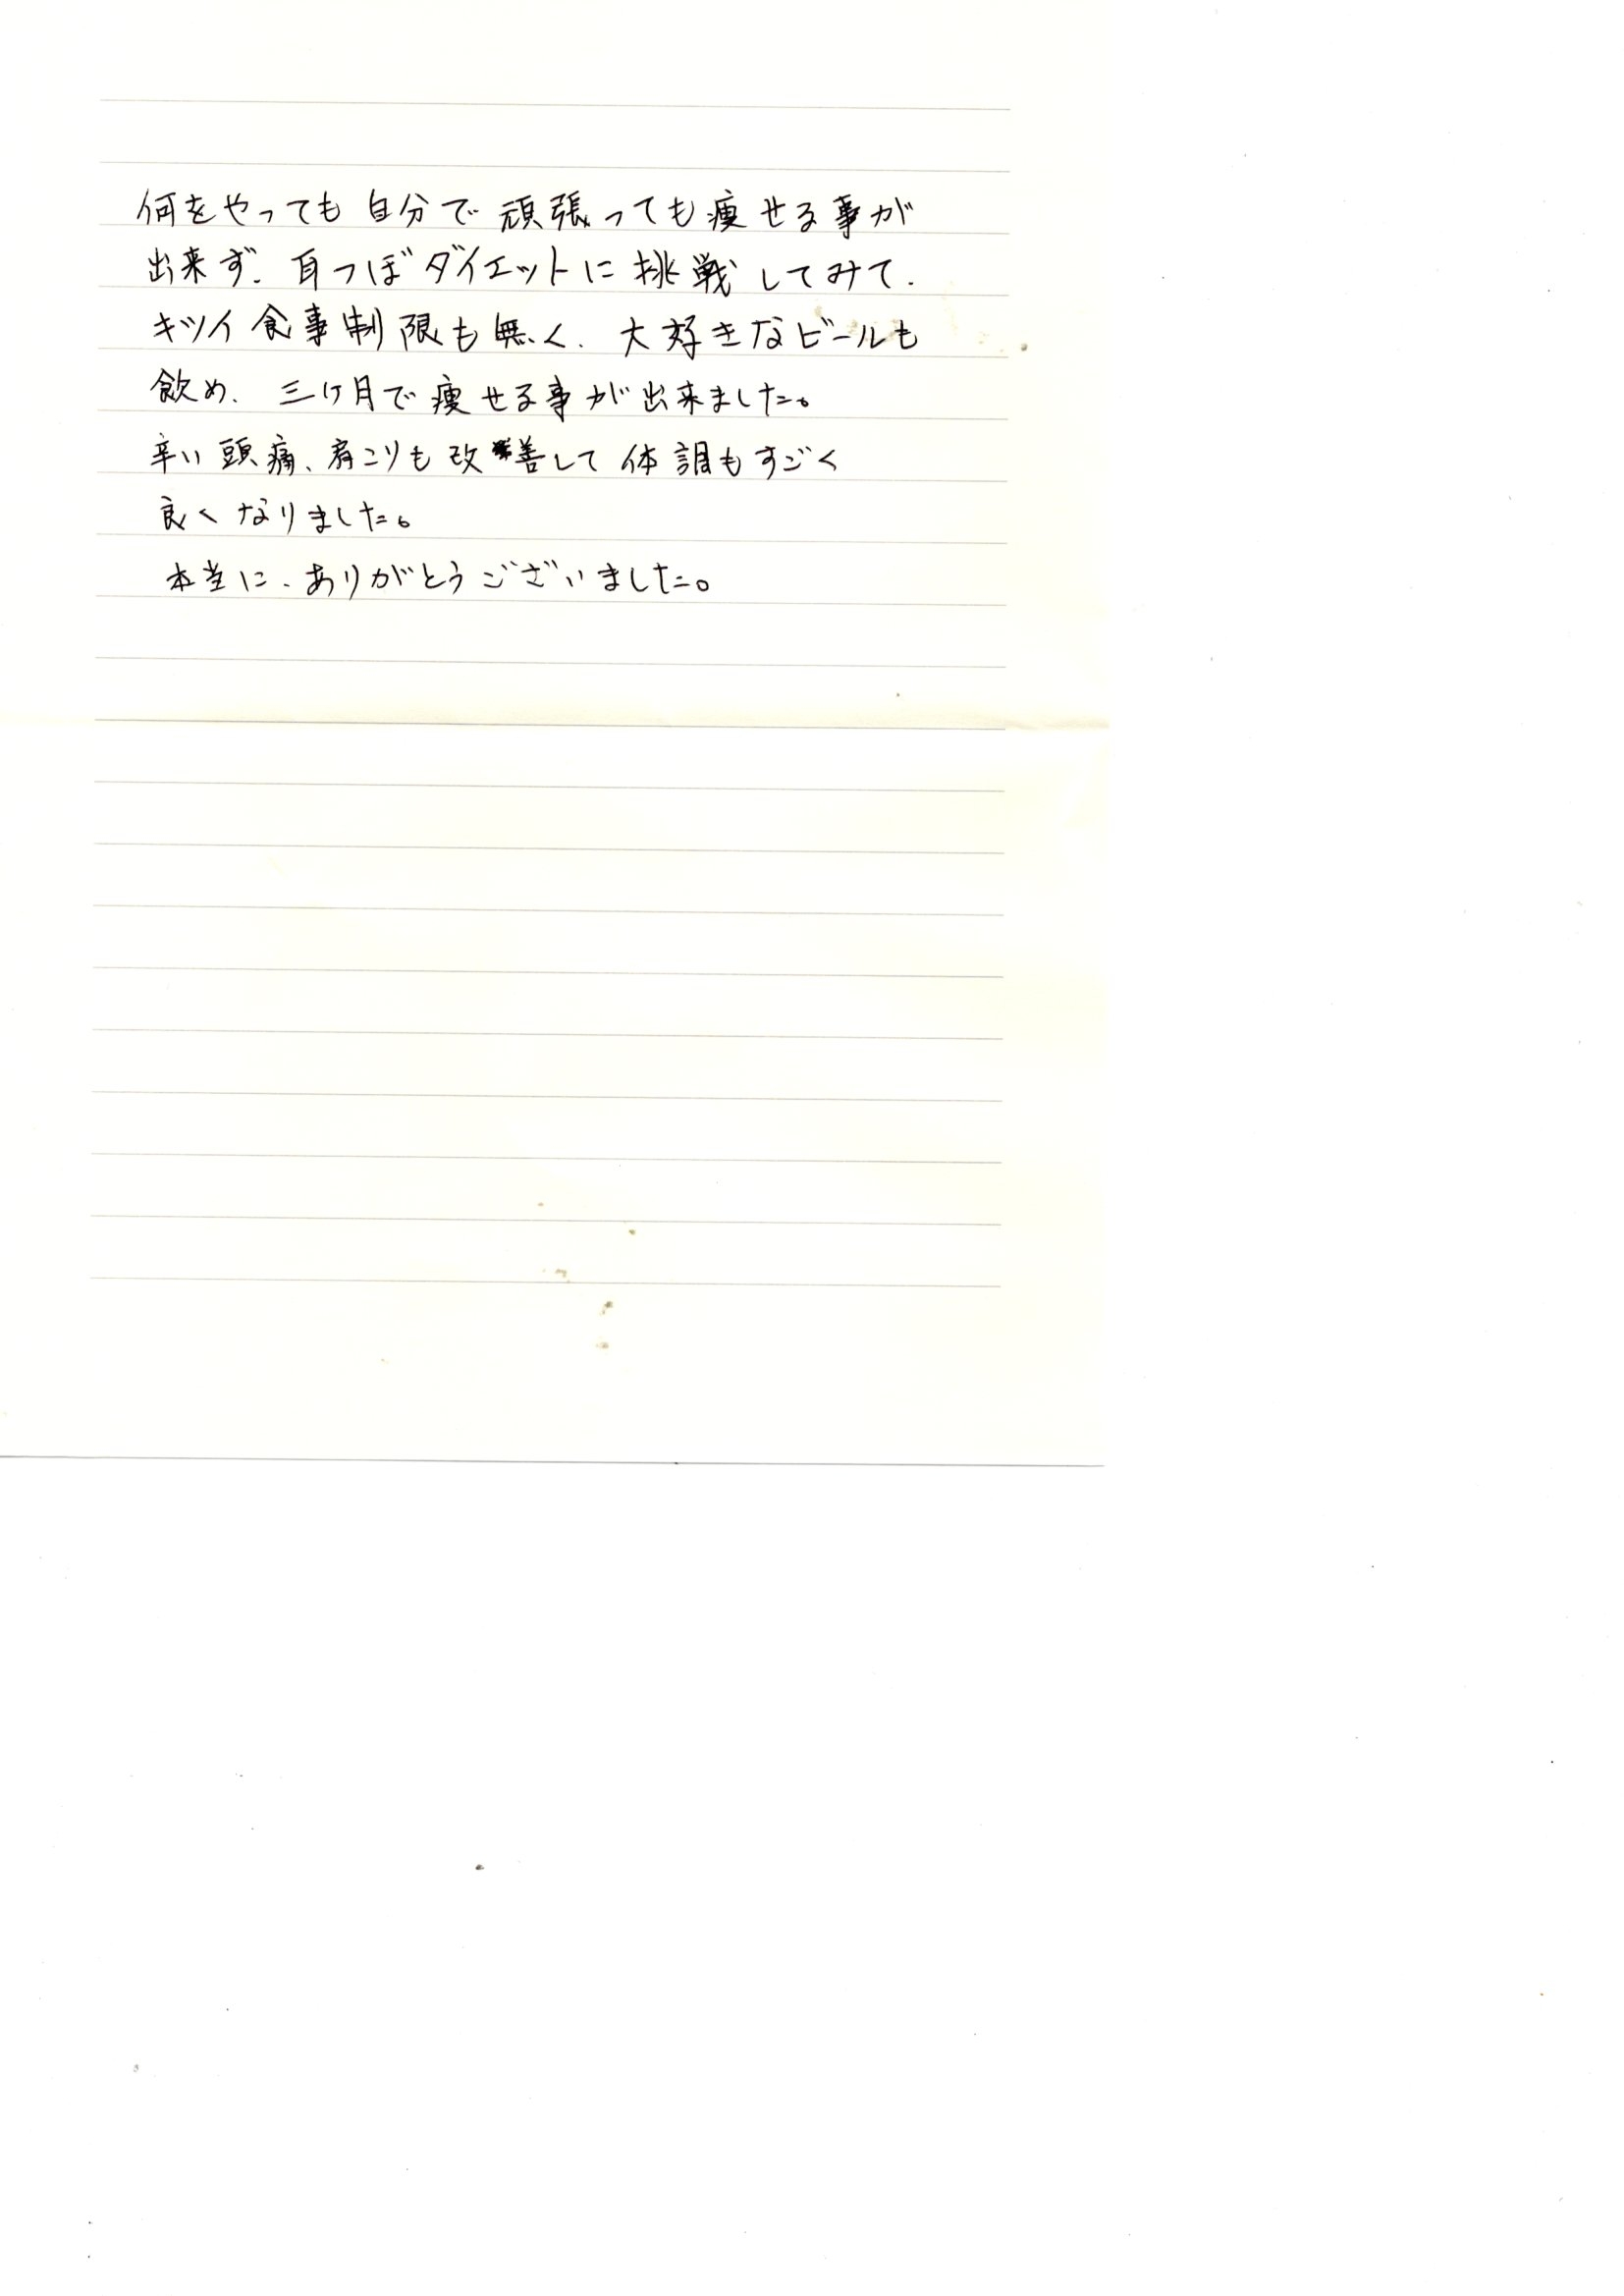 何をやっても自分で頑張っても痩せる事が
出来ず、耳つぼダイエットに挑戦してみて、
キツイ食事制限も無く、大好きなビールも
飲め、三ケ月で痩せる事が出来ました。
辛い頭痛、肩こりも改善して体調もすごく
良くなりました。
本当に、ありがとうございました。